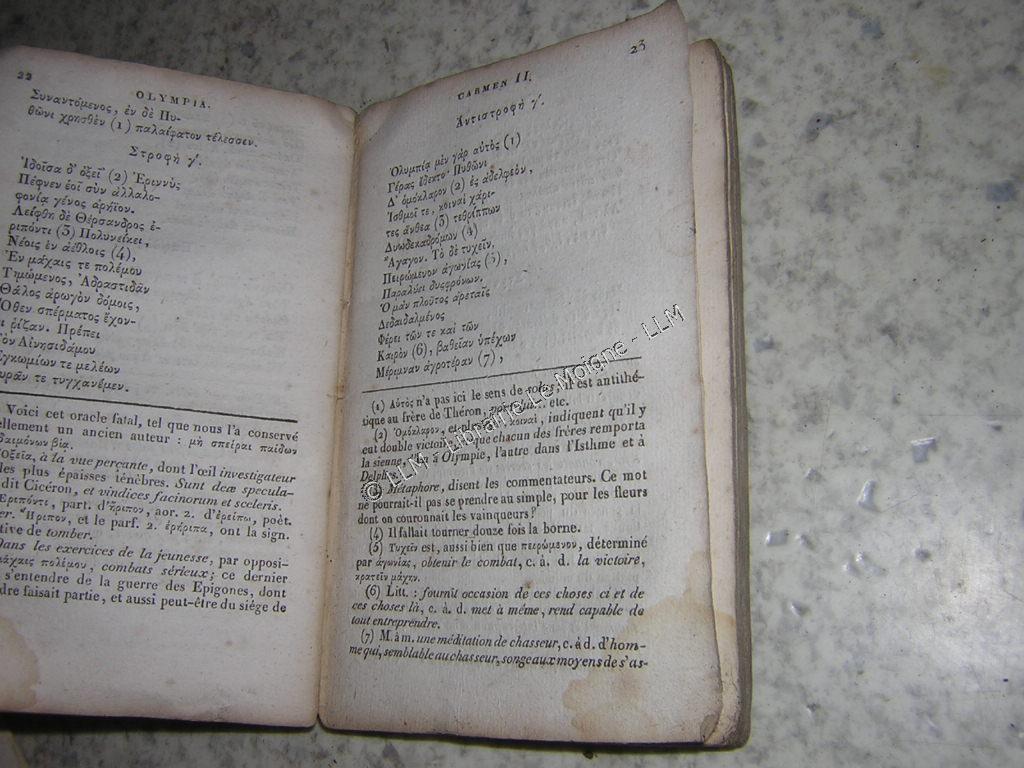 22
OLYMPIA.
Συναντόμενος, ἐν δὲ Πυ-
θῶνι χρησθὲν (1) παλαίφατον τέλεσσεν.
Στροφὴ γ'.
Ἰδοῖσα δ' ὀξεῖ' (2) Ἐριννὺς
Πέφνεν ἑοῖ σὺν ἀλλαλο-
φονίᾳ γένος ἀρήϊον.
Λείφθη δὲ Θέρσανδρος ἐ-
ριπόντι (3) Πολυνείκει,
Νέοις ἐν ἀέθλοις (4),
Ἐν μάχαις τε πολέμου
Τιμώμενος, Ἀδραστιδᾶν
Θάλος ἀρωγὸν δόμοις,
Ὅθεν σπέρματος ἔχον-
ι ῥίζαν. Πρέπει
ὸν Αἰνησιδάμου
γκωμίων τε μελέων
υρᾶν τε τυγχανέμεν.
Voici cet oracle fatal, tel que nous l'a conservé
ellement un ancien auteur : μὴ σπεῖραι παίδων
δαιμόνων βίᾳ.
Ὀξεῖα, à la vue perçante, dont l'œil investigateur
les plus épaisses ténèbres. Sunt deæ specula-
dit Cicéron, et vindices facinorum et sceleris.
Ἐριπόντι, part. d'ἤριπον, aor. 2. d'ἐρείπω, poët.
er. Ἤριπον, et le parf. 2. ἐρήριπα, ont la sign.
tive de tomber.
Dans les exercices de la jeunesse, par opposi-
μάχαις πολέμου, combats sérieux; ce dernier
s'entendre de la guerre des Epigones, dont
dre faisait partie, et aussi peut-être du siége de
CARMEN II.
23
Ἀντιστροφὴ γ'.
Ὀλυμπίᾳ μὲν γὰρ αὐτὸς (1)
Γέρας ἔδεκτο· Πυθῶνι
Δ' ὁμόκλαρον (2) ἐς ἀδελφεὸν,
Ἰσθμοῖ τε, κοιναὶ χάρι-
τες ἄνθεα (3) τεθρίππων
Δυωδεκαδρόμων (4)
Ἄγαγον. Τὸ δὲ τυχεῖν,
Πειρώμενον ἀγωνίας (5),
Παραλύει δυσφρόνων.
Ὁ μὰν πλοῦτος ἀρεταῖς
Δεδαιδαλμένος
Φέρει τῶν τε καὶ τῶν
Καιρὸν (6), βαθεῖαν ὑπέχων
Μέριμναν ἀγροτέραν (7),
(1) Αὐτὸς n'a pas ici le sens de solus; il est antithé-
tique au frère de Théron, etc.
(2) Ὁμόκλαρον, et κοιναὶ, indiquent qu'il y
eut double victoire, que chacun des frères remporta
la sienne, l'un à Olympie, l'autre dans l'Isthme et à
Delphes.
Métaphore, disent les commentateurs. Ce mot
ne pourrait-il pas se prendre au simple, pour les fleurs
dont on couronnait les vainqueurs?
(4) Il fallait tourner douze fois la borne.
(5) Τυχεῖν est, aussi bien que πειρώμενον, déterminé
par ἀγωνίας, obtenir le combat, c. à d. la victoire,
κρατεῖν μάχην.
(6) Litt. : fournit occasion de ces choses ci et de
ces choses là, c. à d. met à même, rend capable de
tout entreprendre.
(7) M. à m. une méditation de chasseur, c. à d. d'hom-
me qui, semblable au chasseur, songe aux moyens de s'as-
© LLM - Librairie Le Moigne - LLM